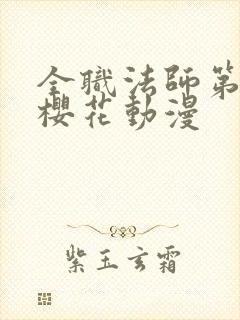 全職法師第
櫻花動漫
紫玉玄霜